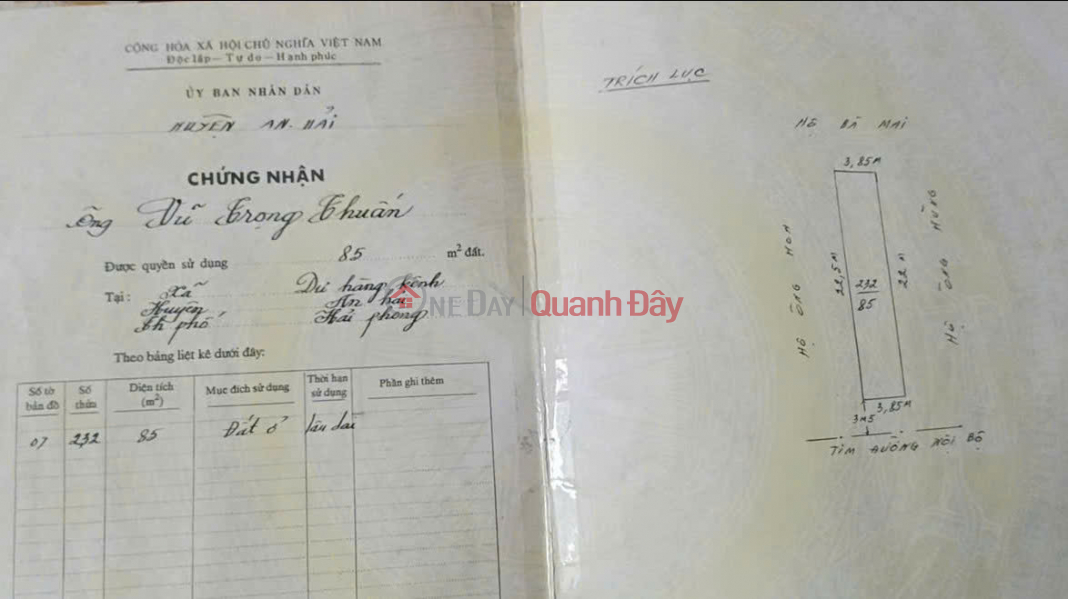 CỘNG HÒA XÃ HỘI CHỦ NGHĨA VIỆT NAM
Độc lập - Tự do - Hạnh phúc
ỦY BAN NHÂN DÂN
HUYỆN AN HẢI
CHỨNG NHẬN
Ông Vũ Trọng Thuấn
Được quyền sử dụng 85 m² đất.
Tại: Xã Dư hàng kênh
Huyện An hải
Th phố Hải phòng
Theo bảng liệt kê dưới đây:
Số tờ bản đồ Số thửa Diện tích (m²) Mục đích sử dụng Thời hạn sử dụng Phần ghi thêm
07 232 85 Đất ở lâu dài
ONEDAY QuanhĐây
TRÍCH LỤC
HỘ BÀ MAI
3,85M
HỘ ÔNG HOA
22,5M
232
85
22M
HỘ ÔNG HÙNG
3,85M
3M5
TIM ĐƯỜNG NỘI BỘ